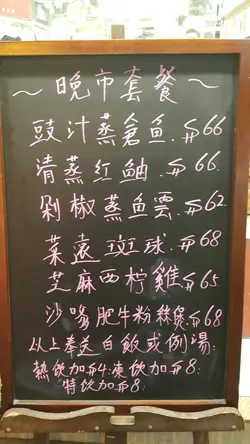 ～晚市套餐～
豉汁蒸倉魚.$66
清蒸紅鮋.$66.
剁椒蒸魚雲.$62
菜遠斑球.$68
芝麻西柠雞$65.
沙嗲肥牛粉絲煲$68
以上奉送白飯或例湯:
熱飲加$4:凍飲加$8:
特飲加$8: